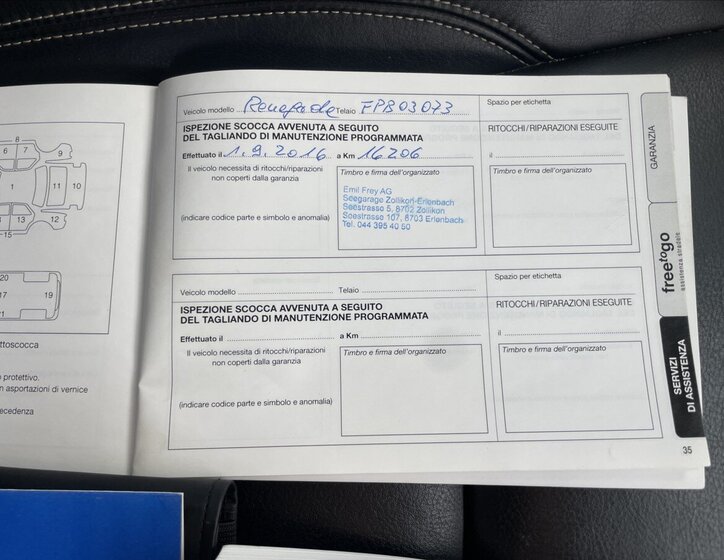 8
6
7
9
1
11
10
3
13
12
15
20
17
19
21
ttoscocca
o protettivo.
n asportazioni di vernice
ecedenza
Veicolo modello Renegade Telaio FPB03073
Spazio per etichetta
ISPEZIONE SCOCCA AVVENUTA A SEGUITO
DEL TAGLIANDO DI MANUTENZIONE PROGRAMMATA
RITOCCHI/RIPARAZIONI ESEGUITE
Effettuato il 1.9.2016 a Km 16206
il
Il veicolo necessita di ritocchi/riparazioni
non coperti dalla garanzia
Timbro e firma dell'organizzato
Timbro e firma dell'organizzato
Emil Frey AG
Seegarage Zollikon-Erlenbach
Seestrasse 5, 8702 Zollikon
Seestrasse 107, 8703 Erlenbach
Tel. 044 395 40 50
(indicare codice parte e simbolo e anomalia)
Veicolo modello Telaio
Spazio per etichetta
ISPEZIONE SCOCCA AVVENUTA A SEGUITO
DEL TAGLIANDO DI MANUTENZIONE PROGRAMMATA
RITOCCHI/RIPARAZIONI ESEGUITE
Effettuato il a Km
il
Il veicolo necessita di ritocchi/riparazioni
non coperti dalla garanzia
Timbro e firma dell'organizzato
Timbro e firma dell'organizzato
(indicare codice parte e simbolo e anomalia)
GARANZIA
freetogo
assistenza stradale
SERVIZI
DI ASSISTENZA
35